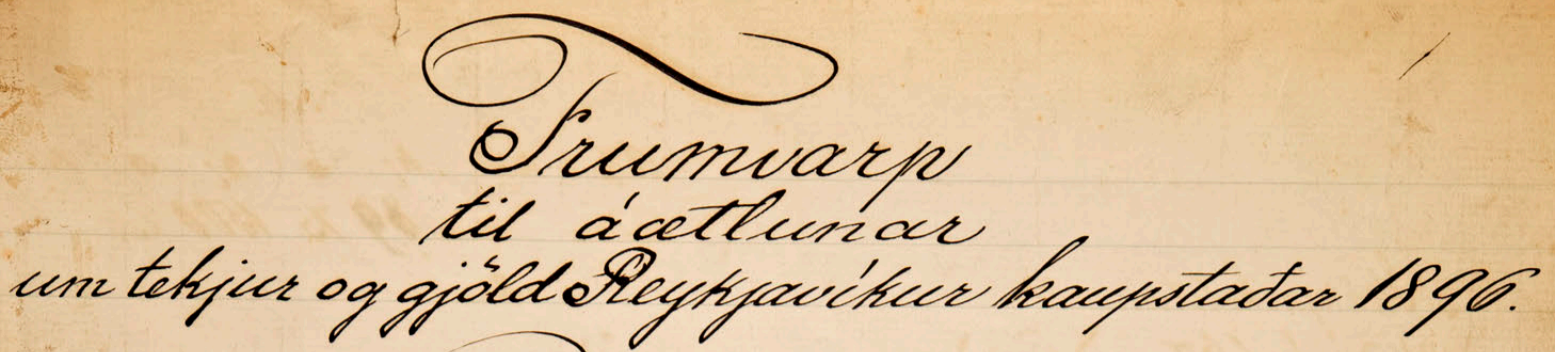 Frumvarp
til áætlunar
um tekjur og gjöld Reykjavíkur kaupstaðar 1896.